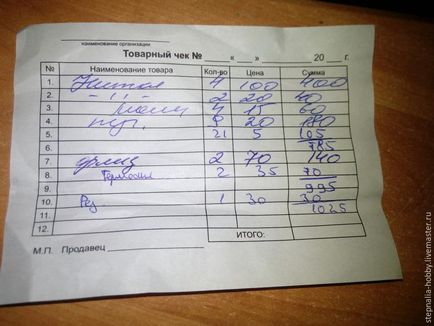 наименование организации
Товарный чек № ____ « __ » ________ 20 __ г.
№ Наименование товара Кол-во Цена Сумма
1. 4 100 400
2. - // - 2 20 40
3. 4 15 60
4. 9 20 180
5. 21 5 105
6. 785
7. 2 70 140
8. 2 35 70
9. 995
10. Рез 1 30 30
11. 1025
12.
ИТОГО:
М.П. Продавец
stepnalia-hobby.livemaster.ru